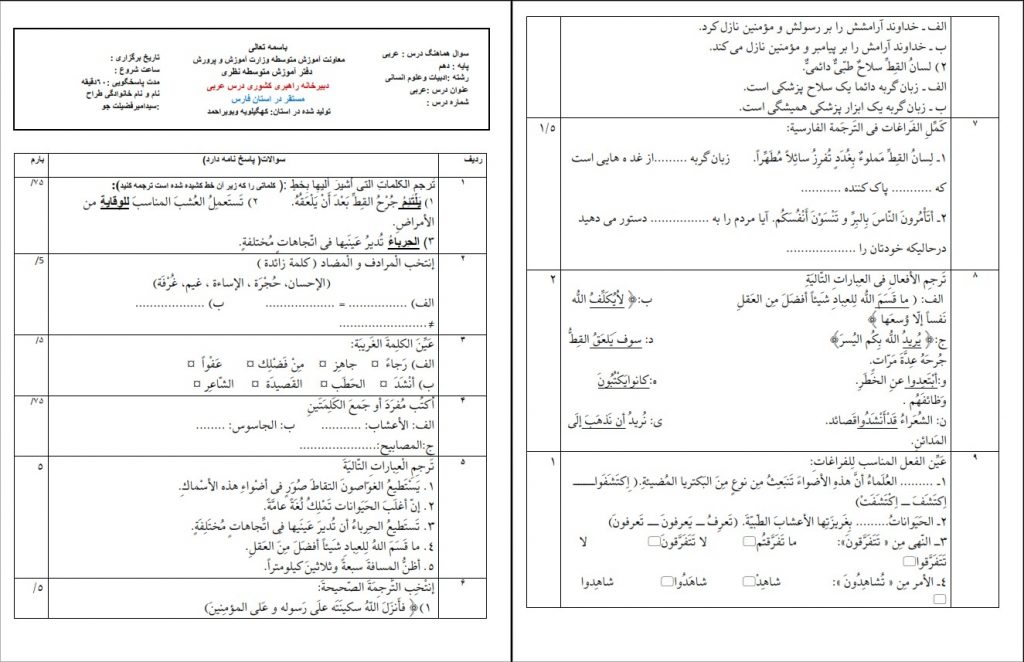 باسمه تعالی
سوال هماهنگ درس : عربی
پایه : دهم
رشته :ادبیات وعلوم انسانی
عنوان درس :عربی
شماره درس :
معاونت آموزش متوسطه وزارت آموزش و پرورش
دفتر آموزش متوسطه نظری
دبیرخانه راهبری کشوری درس عربی
مستقر در استان فارس
تولید شده در استان: کهگیلویه وبویراحمد
تاریخ برگزاری :
ساعت شروع :
مدت پاسخگویی :۶۰دقیقه
نام و نام خانوادگی طراح
:سیدامیرفضیلت جو
ردیف سوالات( پاسخ نامه دارد) بارم
۱ تَرجِمِ الكلماتِ التی أُشیرَ الیها بِخطٍ :( کلماتی را که زیر آن خط کشیده شده است ترجمه کنید): ۷۵/
۱) یَلتَئِمُ جُرْحُ القِطِّ بَعْدَ أَنْ یَلْعَقُهُ. ۲) تَستَعمِلُ العُشبَ المناسبَ للوقایة من
الأمراضِ.
۳) الحِرباءُ تُدیرُ عَینَیها فی اتّجاهاتٍ مُختلفةٍ.
۲ إنتخب المرادف و المضاد ( کلمة زائدة ) 5/
(الإحسان، حُجْرَة ، الإساءة ، غیم، غُرْفَة)
الف) ................ = ................... ب) ...................
≠ ........................
۳ عَیِّنَ الکلِمةَ الغَریبَة: ۵/
الف) رَجاءً ¤ جاهِز ¤ مِنْ فَضْلِك ¤ عَفْواً ¤
ب) أَنْشَدَ ¤ الحَطَب ¤ القَصیدَة ¤ الشّاعِر ¤
۴ اُکتُب مُفرَدَ أو جَمعَ الکَلِمَتَینِ ۷۵/
الف: الأعشاب: ........... ب: الجاسوس: ........
ج:المصابیح:.....................
۵ تَرجِمِ الْعِباراتِ التّالیَةَ ۵
۱. یَسْتَطیعُ الغَوّاصونَ التقاطَ صُوَرٍ فی أضْواءِ هذه الأسْماكِ.
۲. إنّ أغلَبَ الحَیَواناتِ تَمْلِكُ لُغَةً عامَّةً.
۳. تَستَطیعُ الحِرباءُ أن تُدیرَ عَینَیها فی اتِّجاهاتٍ مُختَلِفَةٍ.
٤. ما قَسَمَ اللهُ للعِبادِ شَیئاً أفضَلَ مِنَ العَقلِ.
۵. أظُنُّ المسافةَ سبعةً وثلاثینَ کیلومتراً.
۶ إنتْخِب التَّرجِمةَ الصَّحیحةَ: ۵/
۱)﴿ فأَنزَلَ اللّهُ سکینَتَه علَی رَسولِه و عَلی المؤمِنینَ)
الف ـ خداوند آرامشش را بر رسولش و مؤمنین نازل کرد.
ب ـ خداوند آرامش را بر پیامبر و مؤمنین نازل می کند.
۲) لسانُ القِطِّ سلاحٌ طبّیٌّ دائمیٌّ.
الف ـ زبان گربه دائما یک سلاح پزشکی است.
ب ـ زبان گربه یک ابزار پزشکی همیشگی است.
۷ کَمِّلِ الفَراغات فی التَرجَمة الفارسیة: ۱/۵
۱ـ لِسانُ القِطِّ مَملوءٌ بِغُدَدٍ تُفرِزُ سائلاً مُطَهِّراً. زبان گربه .........از غد ه هایی است
که ........... پاک کننده ...........
۲ـ أتَأمُرونَ النّاسَ بِالبِرِّ و تَنْسَوْنَ أَنْفُسَکُم. آیا مردم را به ................ دستور می دهید
درحالیکه خودتان را ...................
۸ تَرجِمِ الأفعال فی العبارات التّالیَةِ ۲
الف: ( ما قَسَمَ الله للعِبادِ شَیئاً أفضَلَ مِن العَقلِ ب:﴿ لاُیُکَلِّفُ الله
نَفساً إلّا وُسعَها ﴾
ج:﴿ یُریدُ الله بِکُم الیُسرَ﴾ د: سوف یَلعَقُ القِطُّ
جُرحَهُ عِدَّةَ مَرّات.
و:اِبْتَعِدوا عن الخَطَرِ. ه:کانوایَکْتُبُونَ
وَظائفَهُم .
ن: الشُعَراءُ قَدْأَنْشَدُوا قَصائد. ی: نُریدُ أن نَذهَبَ إلَی
المَدائنِ.
۹ عَیِّن الفعل المناسب لِلفَراغاتِ: ۱
۱ـ ......... العُلَماءُ أنَّ هذهِ الأضواءَ تَنبَعِثُ مِن نوعٍ مِنَ البَکتریا المُضیئةِ.( اِکتَشَفَوا___
اِکتَشَفَ ـــ اِکْتَشَفَتْ)
۲ـ الحَیَواناتُ......... بِغَریزَتِها الأعشابَ الطِّبّیَةَ. (تَعرِفُ ـــ یَعرفونَ ـــ تَعرفونَ)
۳ـ النّهی مِن « تَتَفَرَّقونَ»: ما تَفَرَّقتُم▢ لا تَتَفَرَّقونَ▢ لا
تَتَفَرَّقوا▢
٤ـ الأمر مِن « تُشاهِدُونَ »: شاهِدْ▢ شاهَدُوا▢ شاهِدوا
▢